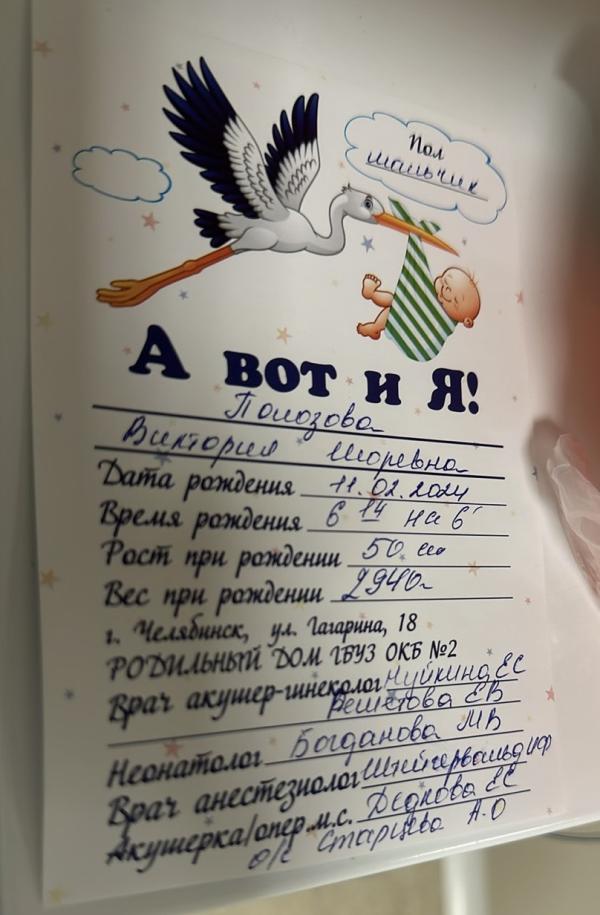 Пол
мальчик
А вот и Я!
Полозова
Виктория Игоревна
Дата рождения 11.02.2024
Время рождения 6 14 на 6
Рост при рождении 50 см
Вес при рождении 2940
г. Челябинск, ул. Гагарина, 18
РОДИЛЬНЫЙ ДОМ ГБУЗ ОКБ №2
Врач акушер-гинеколог Чуйкина ЕС
Решетова ЕВ
Неонатолог Богданова МВ
Врач анестезиолог
Акушерка/опер.м.с. Дедкова ЕС
о/с Старцева А.О